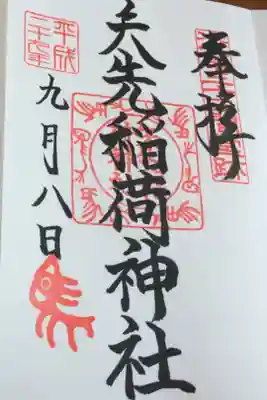 奉拝
矢先稲荷神社
平成
二十七年
九月八日
馬